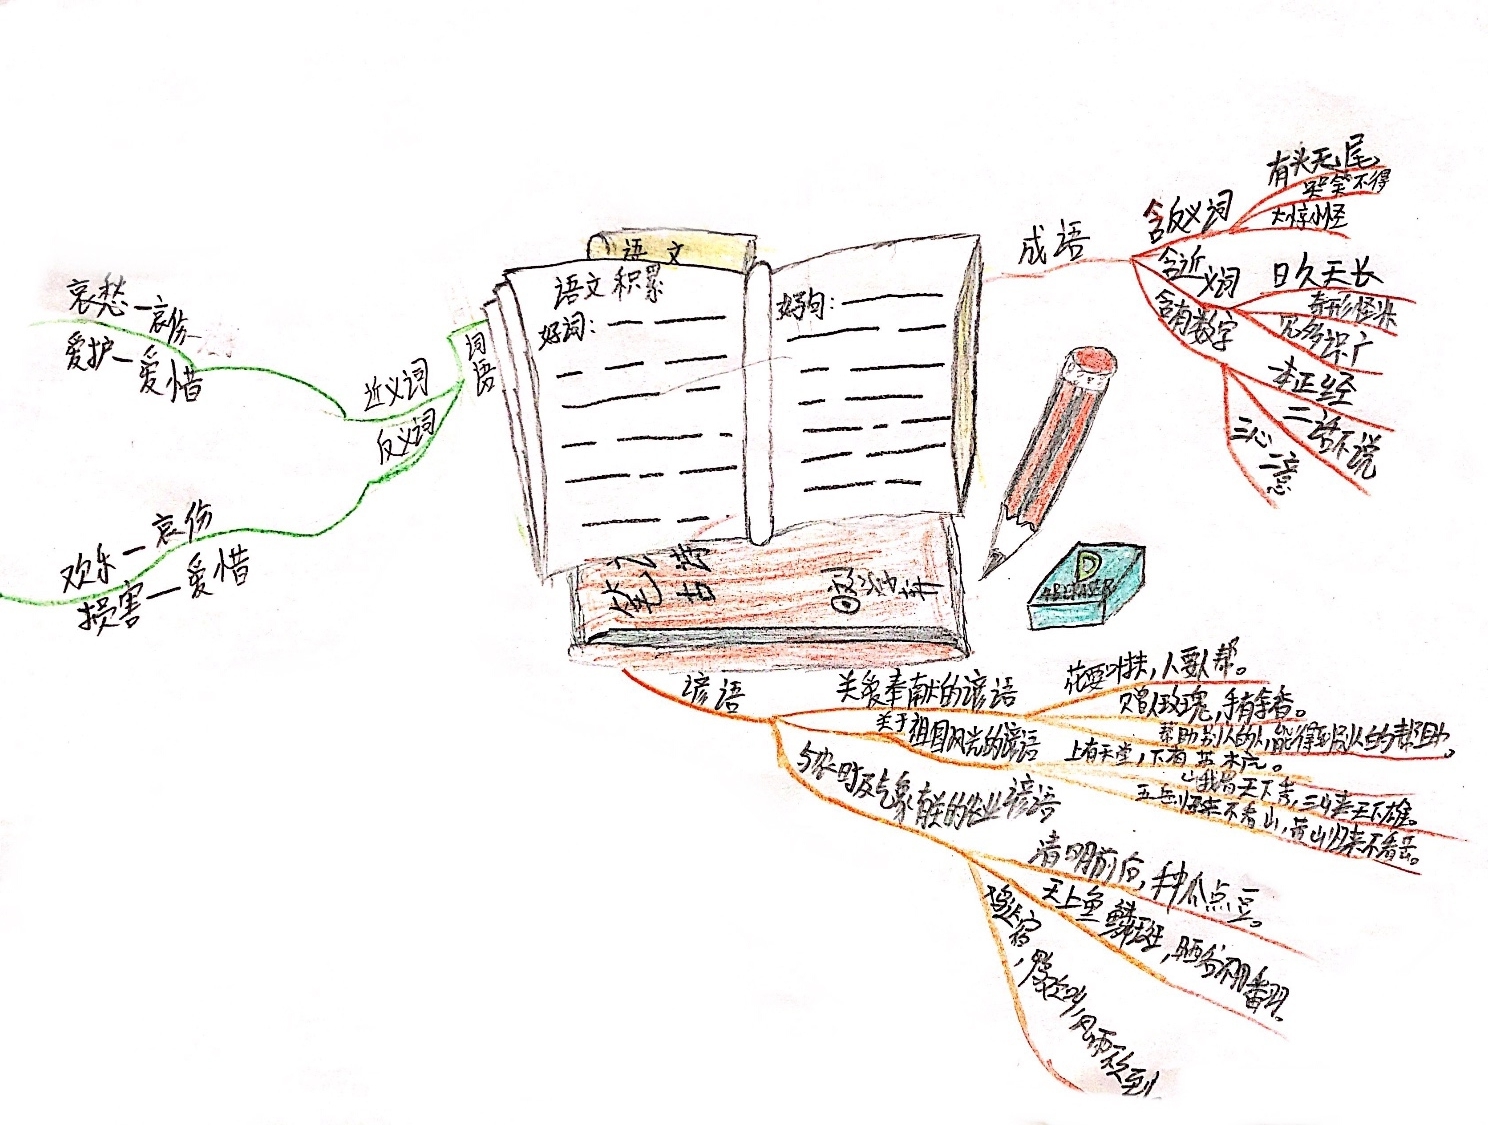 语文
语文积累
好词:
好句:
词语
近义词
哀愁—哀伤
爱护—爱惜
反义词
欢乐—哀伤
损害—爱惜
成语
含反义词
有头无尾
哭笑不得
大惊小怪
含近义词
日久天长
奇形怪状
见多识广
含有数字
一本正经
二话不说
三心二意
笔记
ERASER
谚语
关爱奉献的谚语
花要叶扶,人要人帮。
赠人玫瑰,手有余香。
帮助别人的人,能得到别人的帮助。
关于祖国风光的谚语
上有天堂,下有苏杭。
峨眉天下秀,三峡天下雄。
五岳归来不看山,黄山归来不看岳。
与农时及气象有关的农业谚语
清明前后,种瓜点豆。
天上鱼鳞斑,晒谷不用翻。